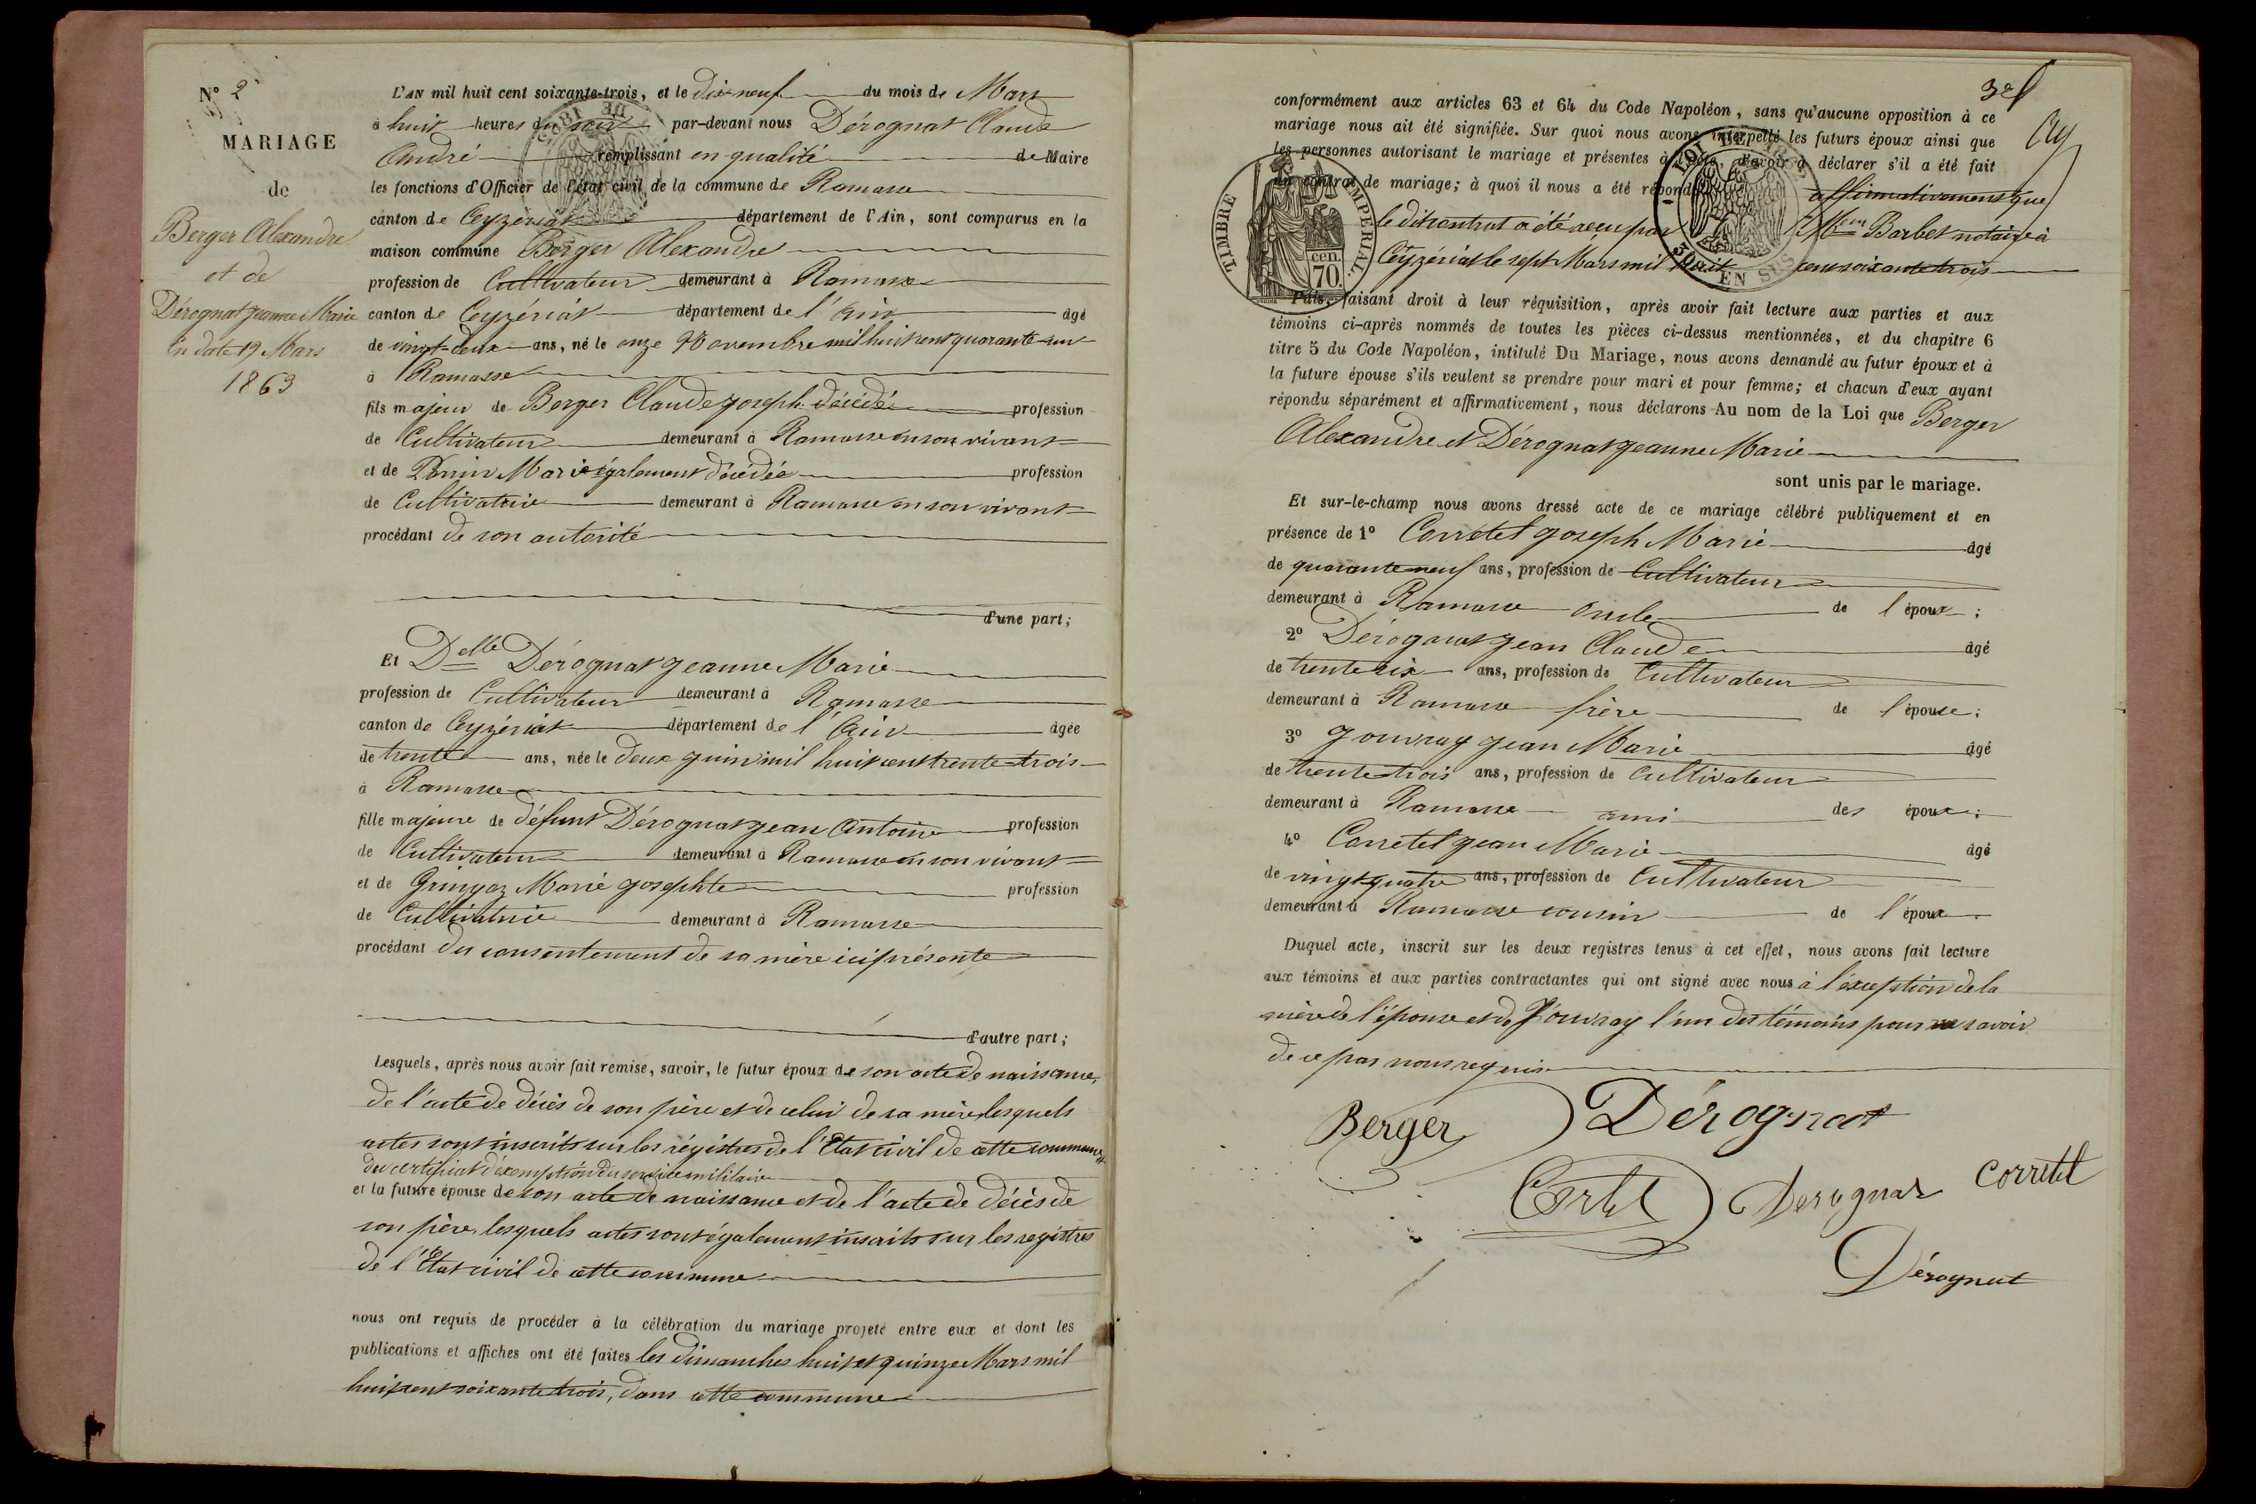 N° 2
MARIAGE
de
Berger Alexandre
et de
Dérognat Jeanne Marie
En date 19 Mars
1863
L'AN mil huit cent soixante-trois, et le dix neuf du mois de Mars
à huit heures du soir par-devant nous Dérognat Claude
André remplissant en qualité de Maire
les fonctions d'Officier de l'état civil de la commune de Ramasse
canton de Ceyzériat département de l'Ain, sont comparus en la
maison commune Berger Alexandre
profession de Cultivateur demeurant à Ramasse
canton de Ceyzériat département de l'Ain âgé
de vingt-deux ans, né le onze Novembre mil huit cent quarante un
à Ramasse
fils majeur de Berger Claude Joseph décédé profession
de Cultivateur demeurant à Ramasse en son vivant
et de Marie également décédée profession
de Cultivatrice demeurant à Ramasse en son vivant
procédant de son autorité
d'une part;
Et Delle Dérognat Jeanne Marie
profession de Cultivateur demeurant à Ramasse
canton de Ceyzériat département de l'Ain âgée
de trente ans, née le deux Juin mil huit cent trente-trois
à Ramasse
fille majeure de défunt Dérognat Jean Antoine profession
de Cultivateur demeurant à Ramasse en son vivant
et de Gringoz Marie Josephte profession
de Cultivatrice demeurant à Ramasse
procédant du consentement de sa mère ici présente
d'autre part;
Lesquels, après nous avoir fait remise, savoir, le futur époux de son acte de naissance,
de l'acte de décès de son père et de celui de sa mère, lesquels
actes sont inscrits sur les régistres de l'Etat civil de cette commune et
du certificat d'exemption du service militaire
et la future épouse de son acte de naissance et de l'acte de décès de
son père, lesquels actes sont également inscrits sur les registres
de l'Etat civil de cette commune
nous ont requis de procéder à la célébration du mariage projeté entre eux et dont les
publications et affiches ont été faites les dimanches huit et quinze Mars mil
huit cent soixante trois, dans cette commune
32
conformément aux articles 63 et 64 du Code Napoléon, sans qu'aucune opposition à ce
mariage nous ait été signifiée. Sur quoi nous avons interpellé les futurs époux ainsi que
les personnes autorisant le mariage et présentes à l'acte, d'avoir à déclarer s'il a été fait
un contrat de mariage; à quoi il nous a été répondu affirmativement que
le dit contrat a été reçu par Barbet notaire à
Ceyzériat le sept Mars mil huit cent soixante trois
TIMBRE IMPERIAL
cen.
70.
EN SUS
Puis, faisant droit à leur réquisition, après avoir fait lecture aux parties et aux
témoins ci-après nommés de toutes les pièces ci-dessus mentionnées, et du chapitre 6
titre 5 du Code Napoléon, intitulé Du Mariage, nous avons demandé au futur époux et à
la future épouse s'ils veulent se prendre pour mari et pour femme; et chacun d'eux ayant
répondu séparément et affirmativement, nous déclarons Au nom de la Loi que Berger
Alexandre et Dérognat Jeanne Marie
sont unis par le mariage.
Et sur-le-champ nous avons dressé acte de ce mariage célébré publiquement et en
présence de 1° Corretel Joseph Marie âgé
de quarante neuf ans, profession de Cultivateur
demeurant à Ramasse oncle de l'époux;
2° Dérognat Jean Claude âgé
de trente six ans, profession de Cultivateur
demeurant à Ramasse frère de l'épouse;
3° Jouvray Jean Marie âgé
de trente trois ans, profession de Cultivateur
demeurant à Ramasse ami des époux;
4° Corretel Jean Marie âgé
de vingt quatre ans, profession de Cultivateur
demeurant à Ramasse cousin de l'époux.
Duquel acte, inscrit sur les deux registres tenus à cet effet, nous avons fait lecture
aux témoins et aux parties contractantes qui ont signé avec nous à l'exception de la
mère de l'épouse et de Jouvray l'un des témoins pour ne savoir
de ce par nous requis
Berger Dérognat
Derognat Corretel
Dérognat